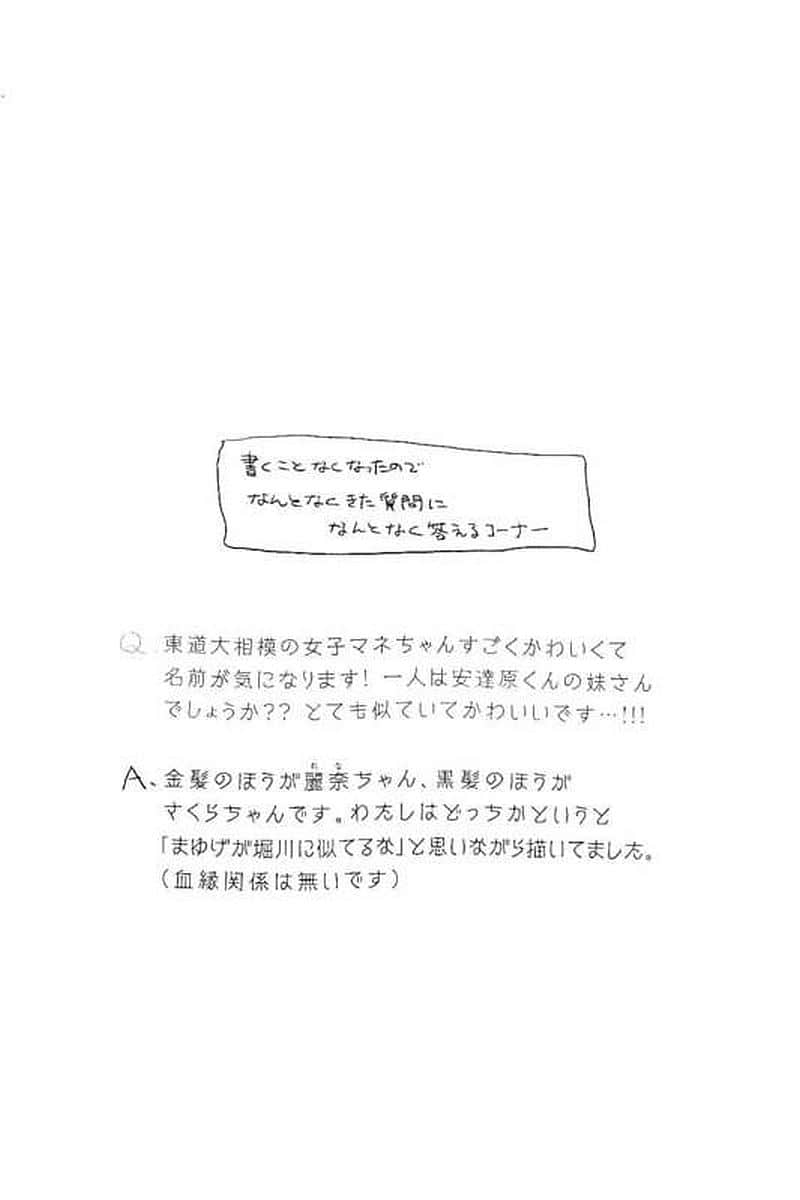 書くことなくなったので
なんとなくきた質問に
なんとなく答えるコーナー
Q. 東道大相模の女子マネちゃんすごくかわいくて
名前が気になります! 一人は安達原くんの妹さん
でしょうか?? とても似ていてかわいいです…!!!
れな
A、金髪のほうが麗奈ちゃん、黒髪のほうが
さくらちゃんです。わたしはどっちかというと
「まゆげが堀川に似てるな」と思いながら描いてました。
(血縁関係は無いです)